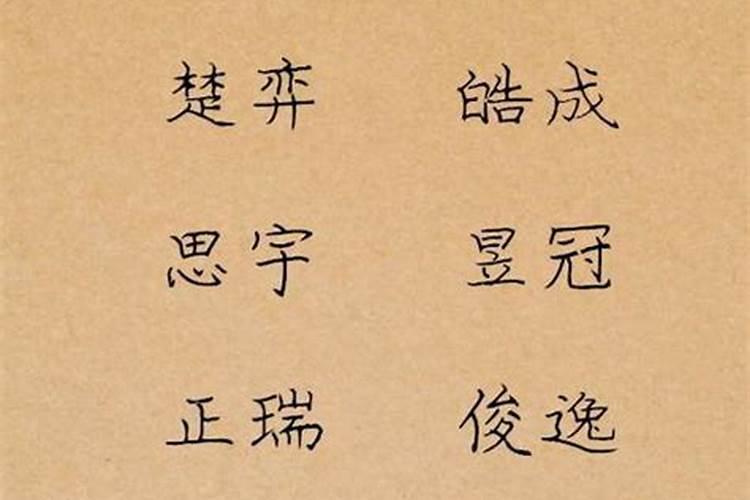 楚弈 皓成
思宇 昱冠
正瑞 俊逸